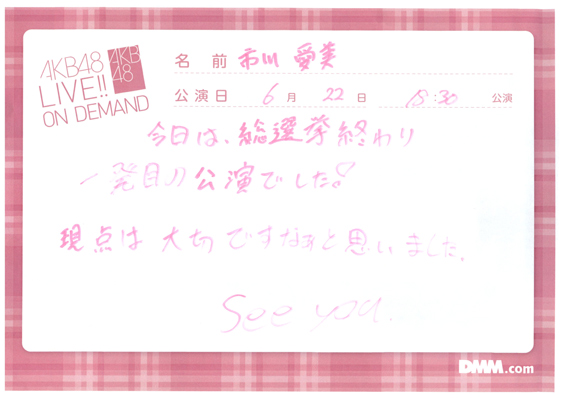 AKB48
LIVE!!
ON DEMAND
AKB
48
名前 市川 愛美
公演日 6月 22日 18:30 公演
今日は、総選挙終わり
一発目の公演でした!
現点は大切ですなぁと思いました。
See you.
DMM.com